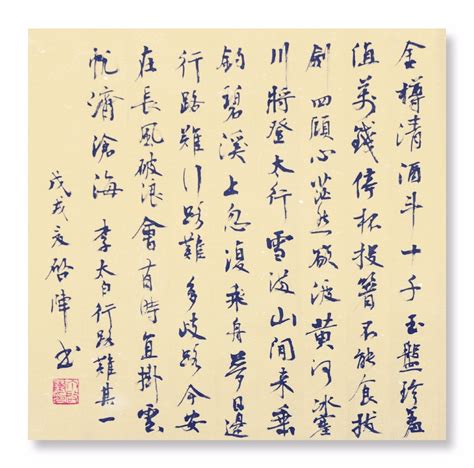 金樽清酒斗十千玉盤珍羞
值萬錢停杯投箸不能食拔
劍四顧心茫然欲渡黃河冰塞
川將登太行雪滿山閒來垂
釣碧溪上忽復乘舟夢日邊
行路難行路難多歧路今安
在長風破浪會有時直掛雲
帆濟滄海 李太白行路難其一
戊戌夏啓陣書